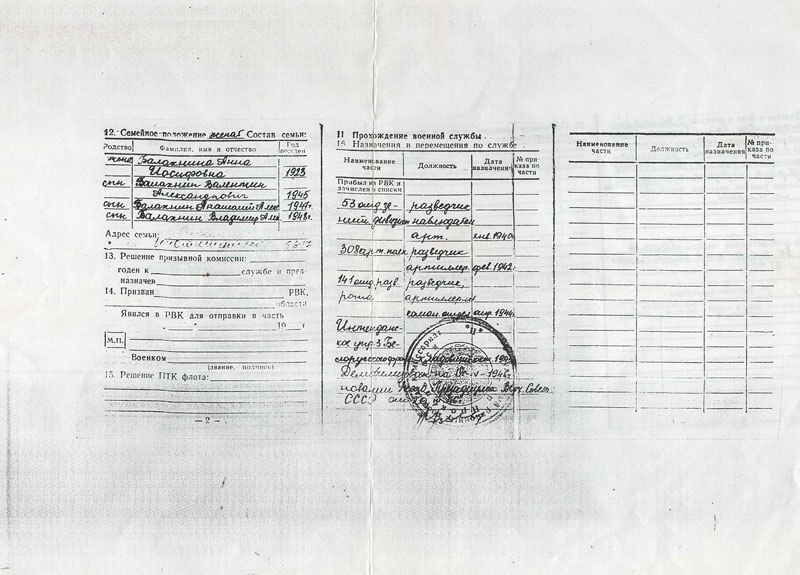 12. Семейное положение женат Состав семьи:
Родство Фамилия, имя и отчество Год рожден.
жена Балахнина Анна
Иосифовна 1923
сын Балахнин Валентин
Александрович 1945
сын Балахнин Анатолий Алек 1947г.
сын Балахнин Владимир Алек. 1948г.
Адрес семьи:
13. Решение призывной комиссии:
годен к службе и пред-
назначен
14. Признан РВК,
области
Явился в РВК для отправки в часть
19 г
М.П.
Военком
(звание, подпись)
15. Решение ПТК флота:
— 2 —
II Прохождение военной службы.
15 Назначения и перемещения по службе
Наименование части Должность Дата назначения № при-каза по части
Прибыл из РВК и
зачислен в списки
53 отд зе- разведчик
нит. дивизион наблюдатель
арт. янв.1940г.
308 арт. полк разведчик
артиллер. фев.1942г.
141 отд. разв. разведчик,
рота артиллерии
апр.1944г.
Интендан-
ское упр 3 Бе-
лорусского фронта
Демобилизован V-1946г.
Указ Президиума Верх. Совет.
СССР от
Наименование части Должность Дата назначения № при-каза по части